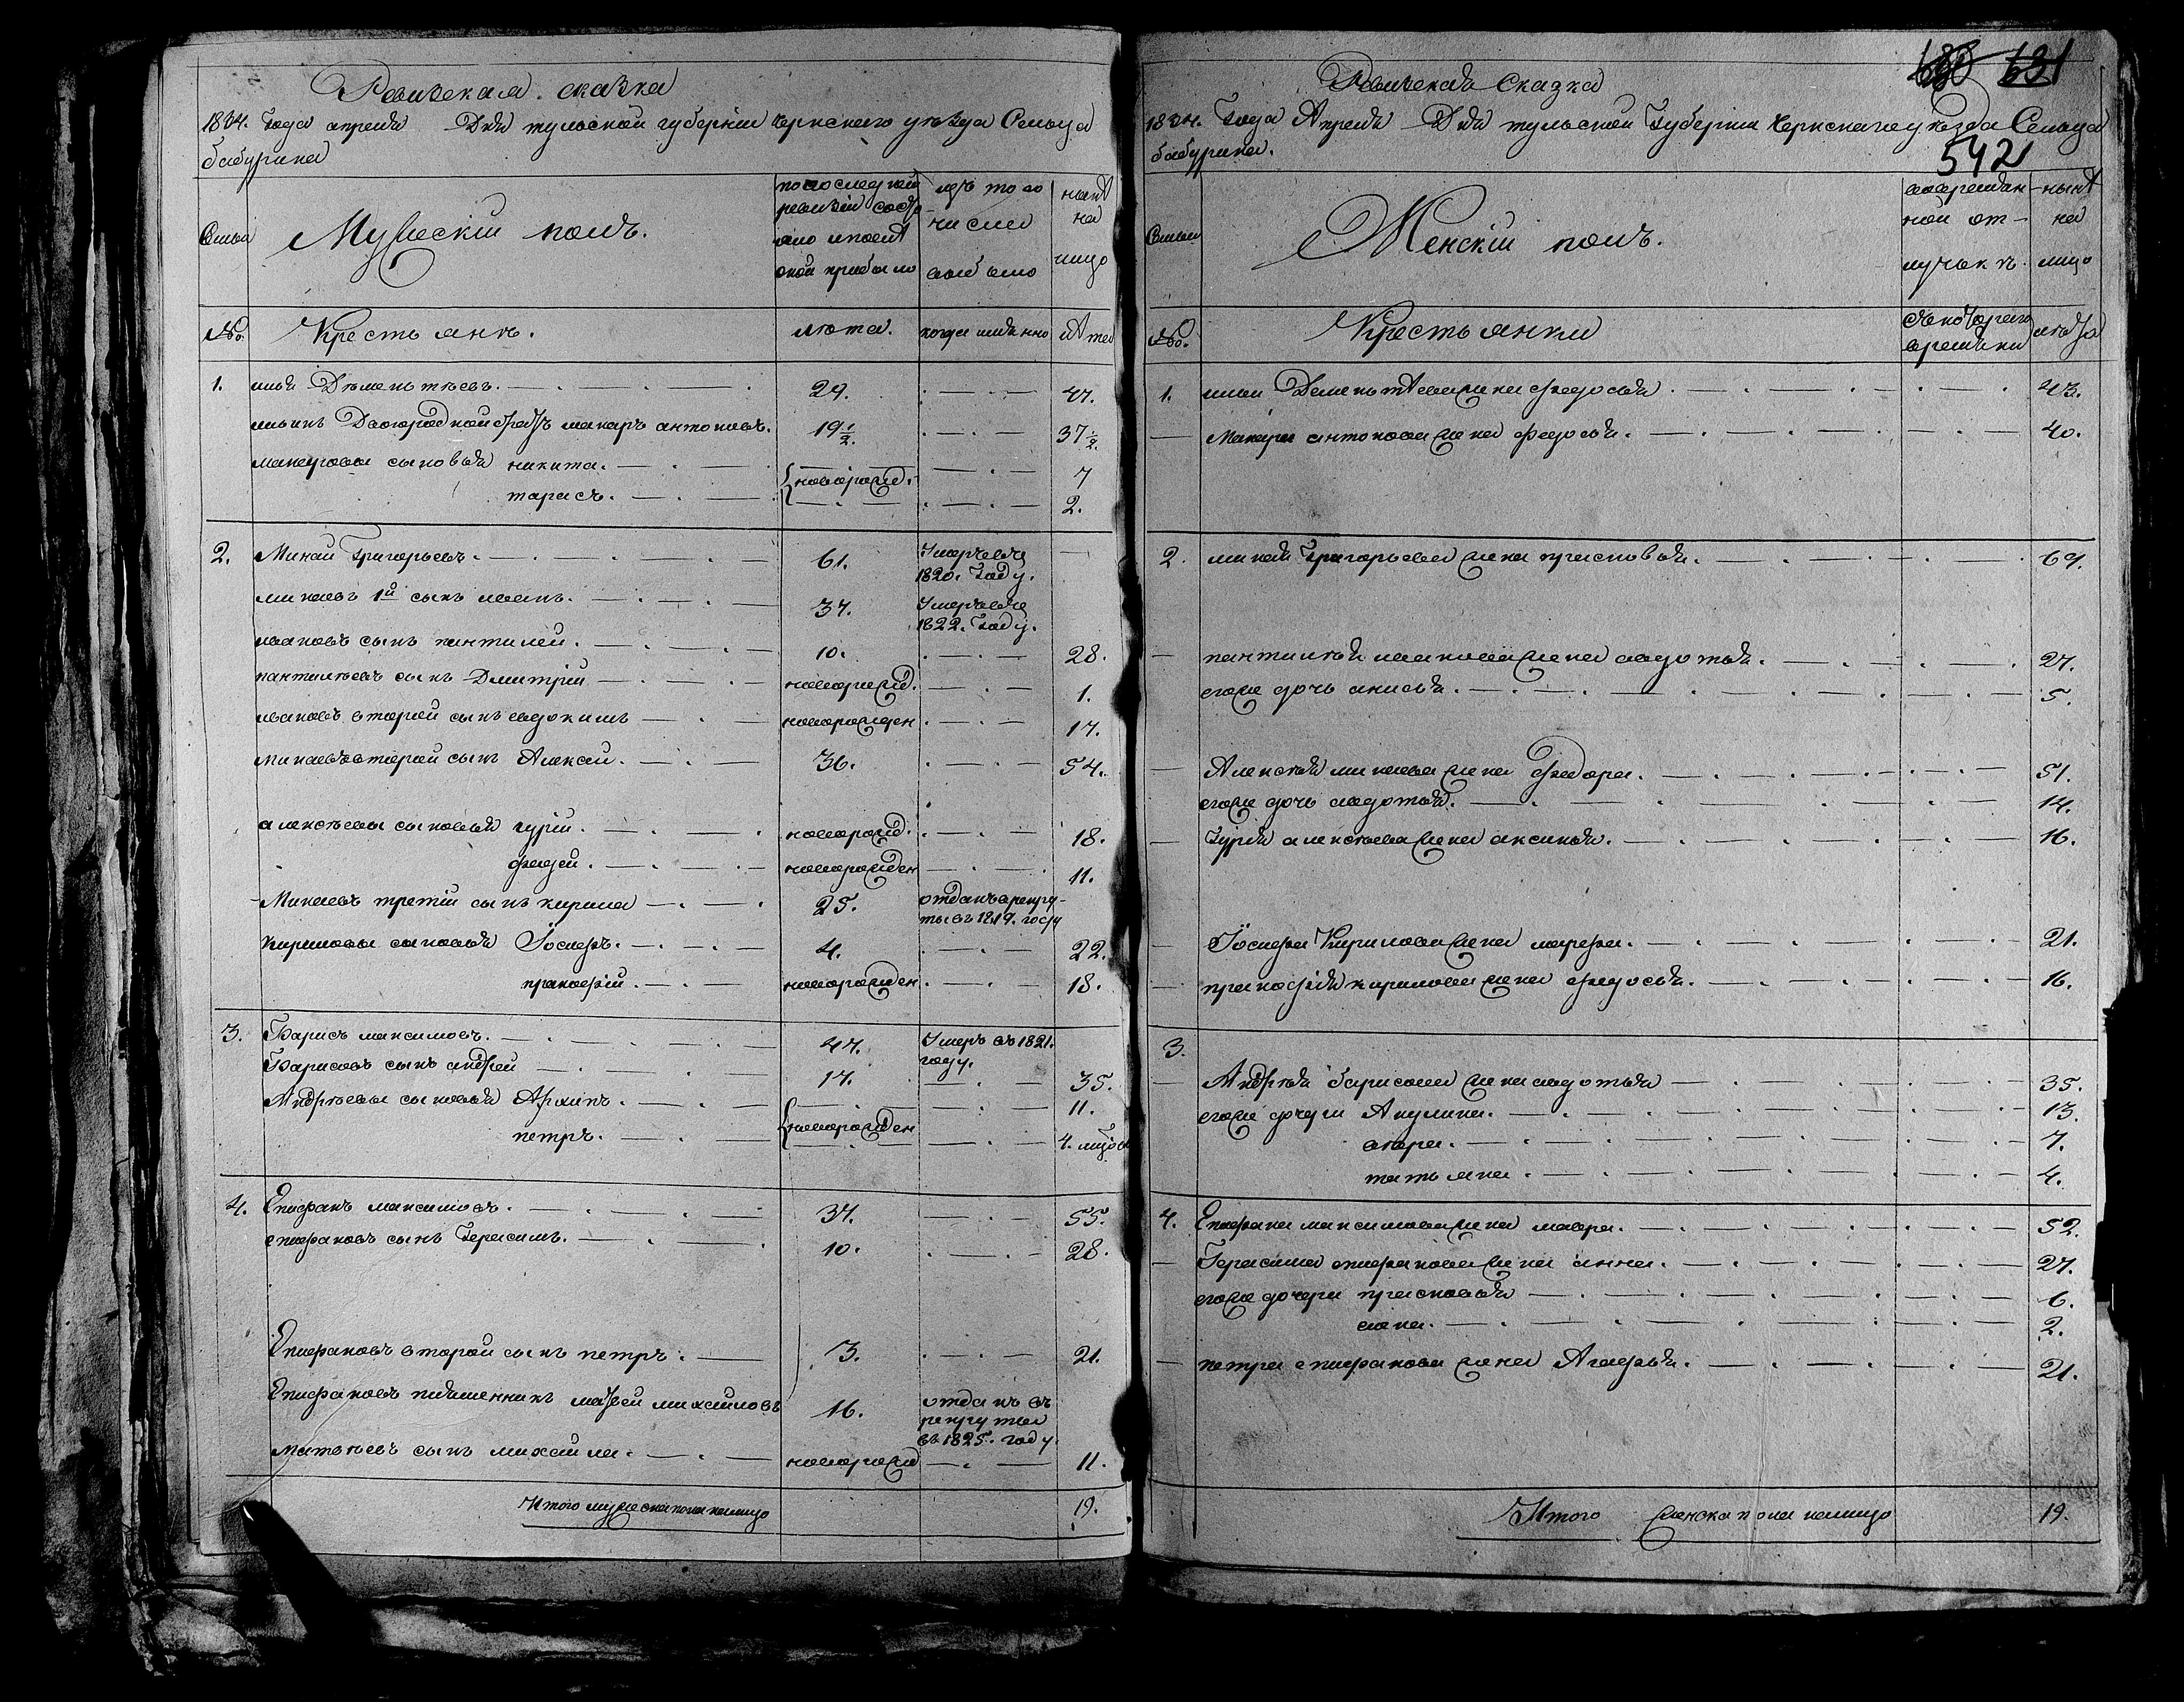 Ревизская сказка
1834. года апреля Дня тульской губерніи чернскаго уѣзда Сельца
бабурина
Семьи
Мужескій полъ.
по последней ревизіи состояло и после оной прибыло
изъ того числа выбыло
нынѣ на лицо
№.
Крестьянъ.
лета.
когда именно
лѣта
1. илья Дѣментьевъ. 29. 47.
ильинъ Двоюродной братъ макаръ антоновъ. 19 1/2. 37 1/2.
макаровы сыновья никита. новорожд. 7
тарасъ. 2.
2. Минай Григорьевъ. 61. Умеръ въ 1820. Году.
минаевъ 1й сынъ иванъ. 37. Умеръ въ 1822. Году.
ивановъ сынъ пантилей. 10. 28.
пантилѣевъ сынъ Дмитрій новорожд. 1.
ивановъ второй сынъ евдокимъ новорожден 17.
минаевъ второй сынъ Алексей. 36. 54.
алексѣевы сыновья гурій. новорожд. 18.
фадей. новорожден 11.
Минаевъ третій сынъ кирила 25. отданъ в рекруты въ 1819. году
кириловы сыновья Іосифъ. 4. 22.
пракофій. новорожден. 18.
3. Барисъ максимовъ. 47. Умеръ въ 1821. году.
Барисовъ сынъ андрей 17. 35.
Андрѣевы сыновья Архипъ. новорожден 11.
петръ. 4.
4. Епифанъ максимовъ. 37. 55.
епифановъ сынъ Герасимъ. 10. 28.
Епифановъ второй сынъ петръ. 3. 21.
Епифановъ племянникъ матвей михайловъ 16. отданъ въ рекруты въ 1825. году.
матвѣевъ сынъ михайла. новорожд 11.
Итого мужеска пола налицо 19.
688 691
Ревизская Сказка
1834. Года Апреля Дня тульской Губерніи Чернскаго уезда Сельца
бабурина.
542
Семьи
Женскій полъ.
во временной отлучьке.
нынѣ на лицо
№.
Крестьянки
съ котораго времени
лѣта
1. ильи Дементѣева жена федосья. 43.
Макара антонова жена федосья. 40.
2. миная Григорьева жена прасковья. 69.
пантилѣя иванова жена авдотья. 27.
егоже дочь анисья. 5.
Алексѣя минаева жена федора. 51.
егоже дочь авдотья. 14.
Гурія алексѣева жена аксинья. 16.
Іосифа Кирилова жена марфа. 21.
пракофія кирилова жена федосья. 16.
3.
Андрѣя барисова жена авдотья 35.
егоже дочери Акулина. 13.
7.
татьяна. 4.
4. Епифана максимова жена мавра. 52.
Герасима епифанова жена анна. 27.
егоже дочери прасковья 6.
2.
петра епифанова жена Агафья. 21.
Итого женска пола налицо 19.